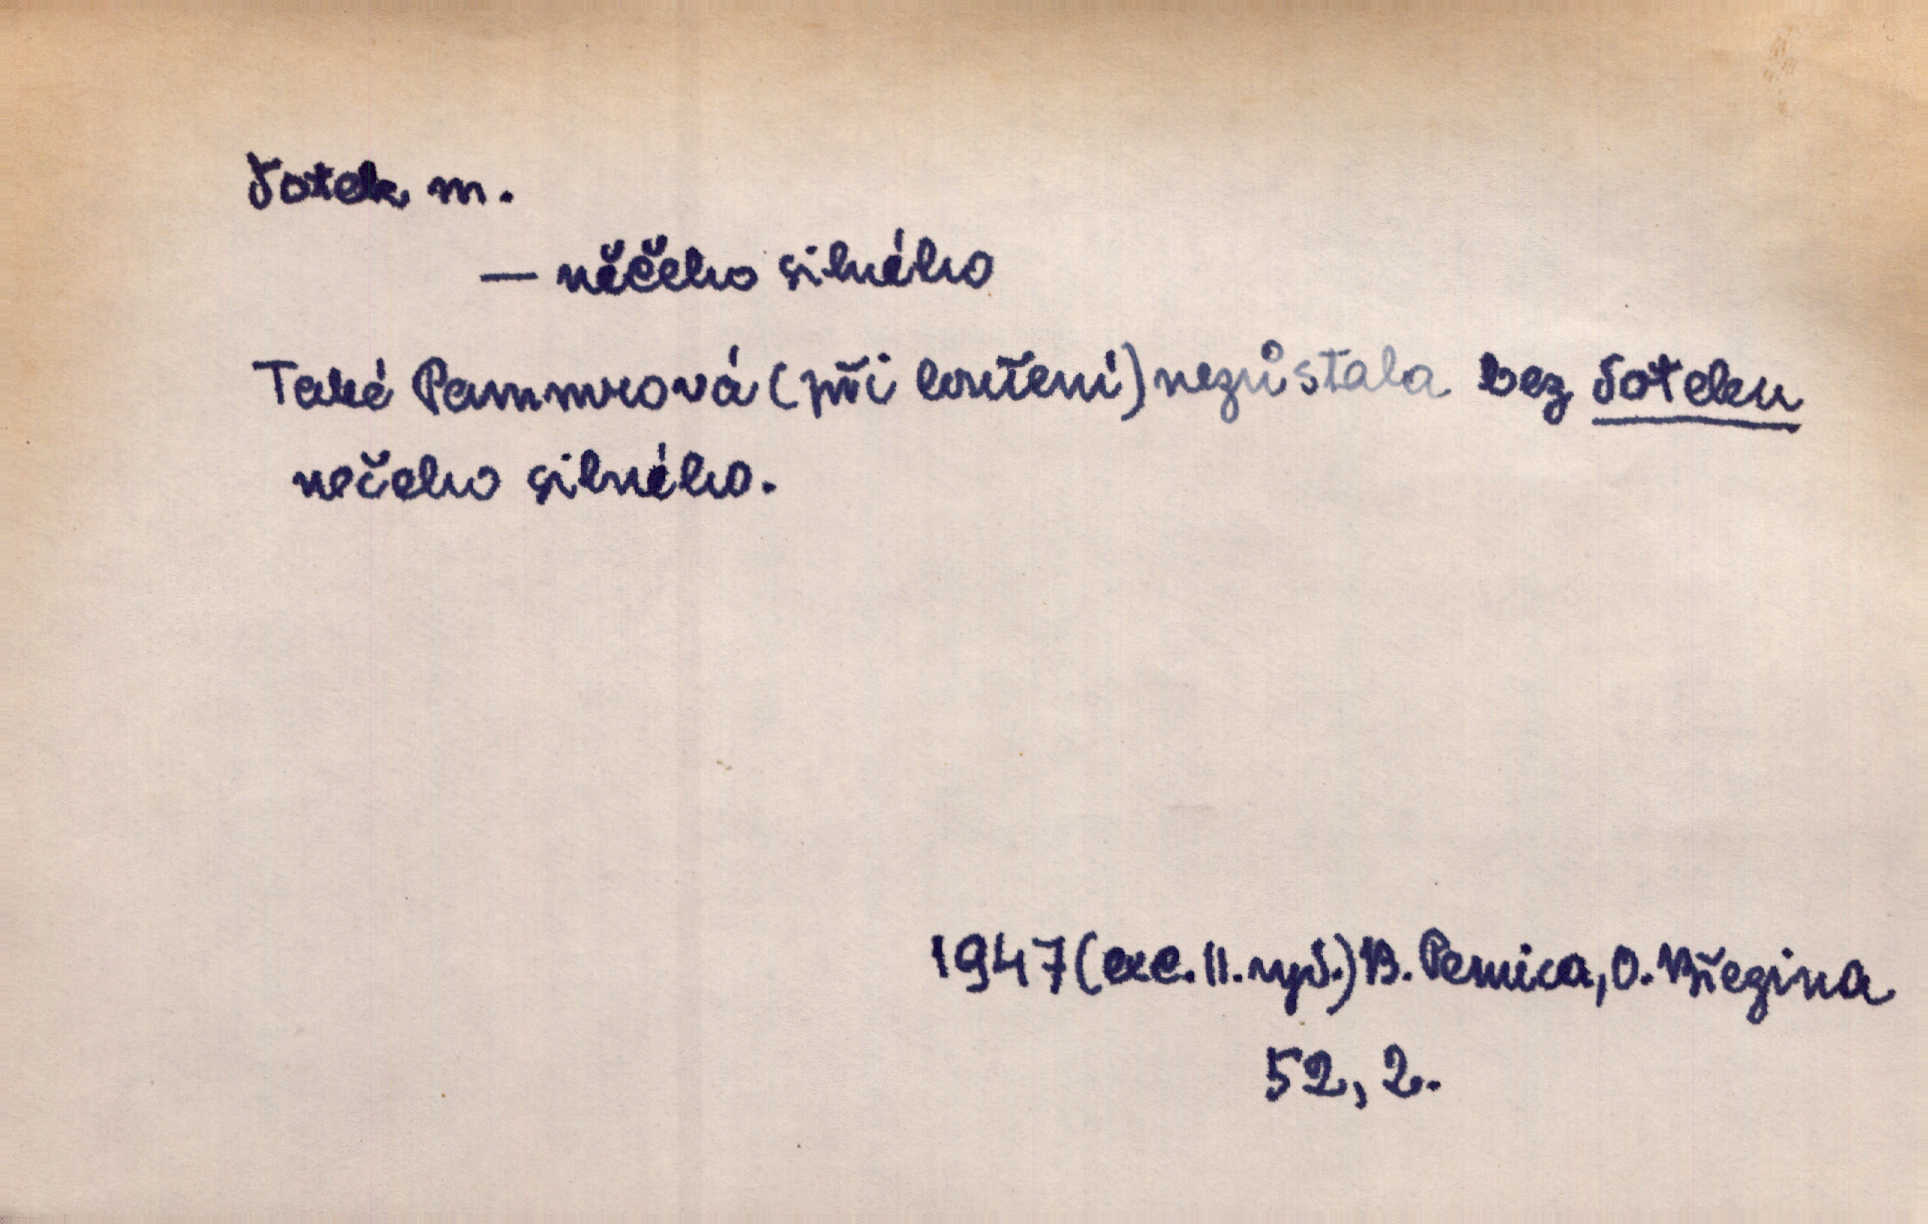 dotek m.
— něčeho silného
Také Pammrová (při loučení) nezůstala bez doteku
nečeho silného.
1947 (exc. II. vyd.) B. Pernica, O. Březina
52, 2.